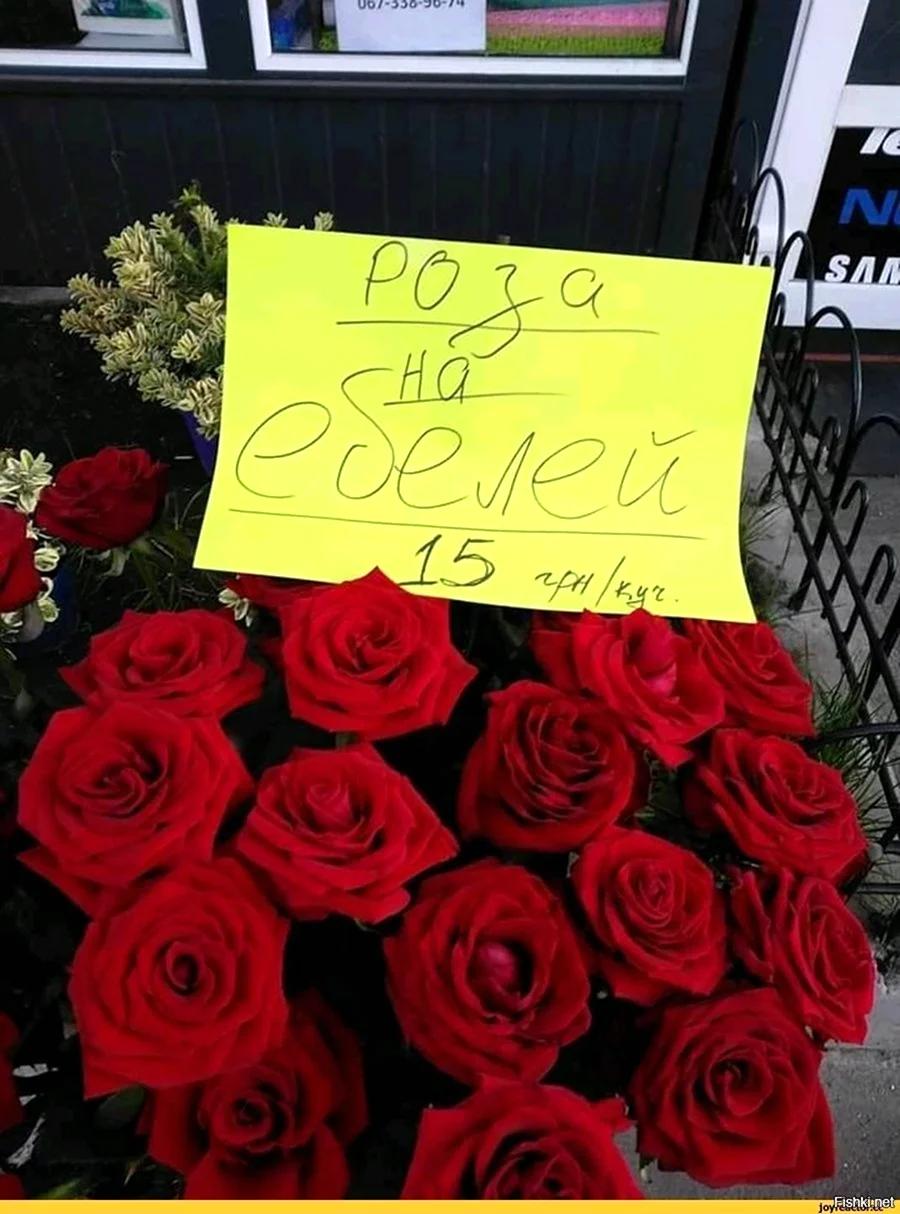 067-338-96-74
роза
на
ебелей
15 грн/куч.
SAM
Fishki.net
joyreactor.cc